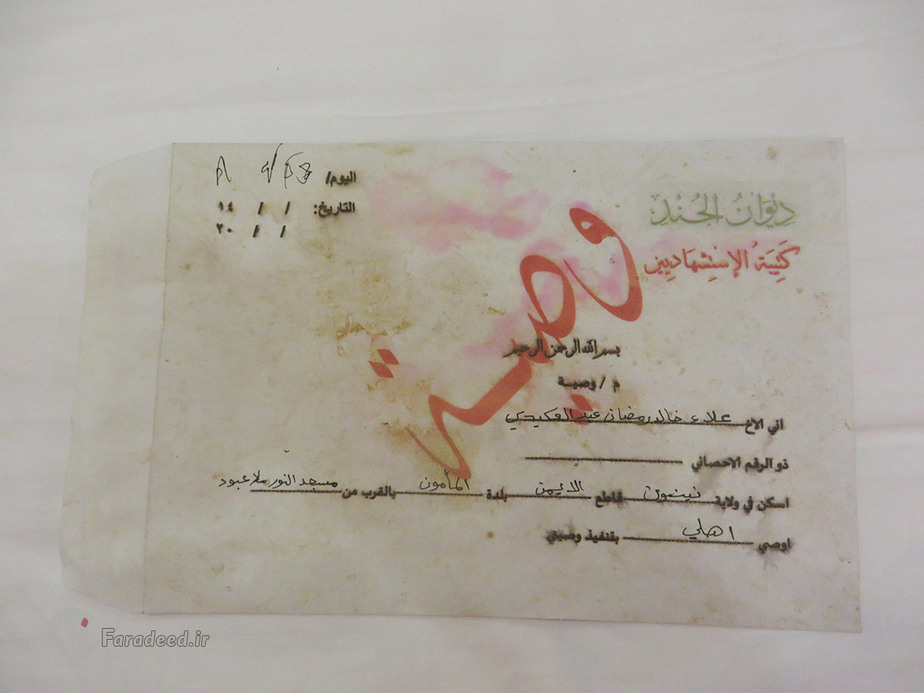 ديوان الجند
كتيبة الإستشهاديين
اليوم/
التاريخ: / / ١٤
/ / ٢٠
وصية
بسم الله الرحمن الرحيم
م / وصية
اني الاخ علاء خالد رمضان عبد العكيدي
ذو الرقم الاحصائي
اسكن في ولاية نينوى قاطع الايمن بلدة المأمون بالقرب من مسجد النور ملا عبود
اوصي اهلي بتنفيذ وصيتي
Faradeed.ir